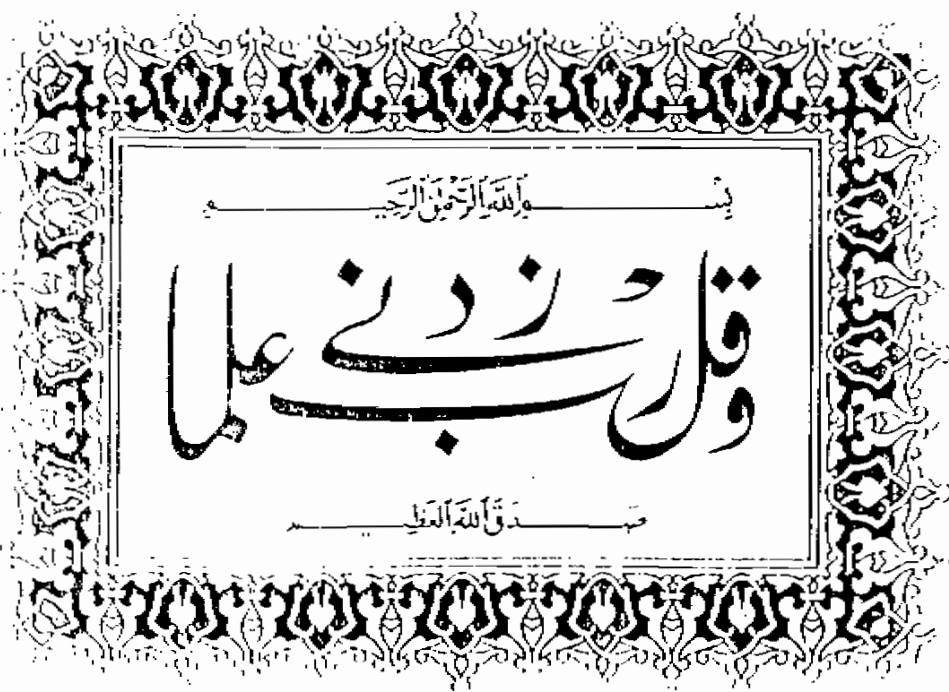 بِسْمِ اللَّهِ الرَّحْمَٰنِ الرَّحِيمِ
وقل رب زدني علما
صَدَقَ اللَّهُ العَظِيم